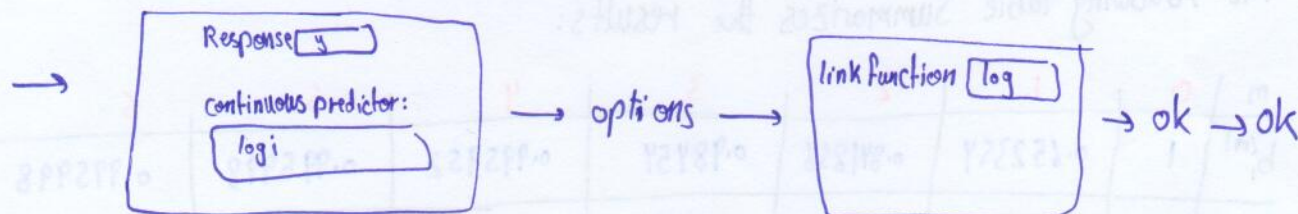 Response y
continuous predictor:
logi
→ → options → → ok → ok
link function log